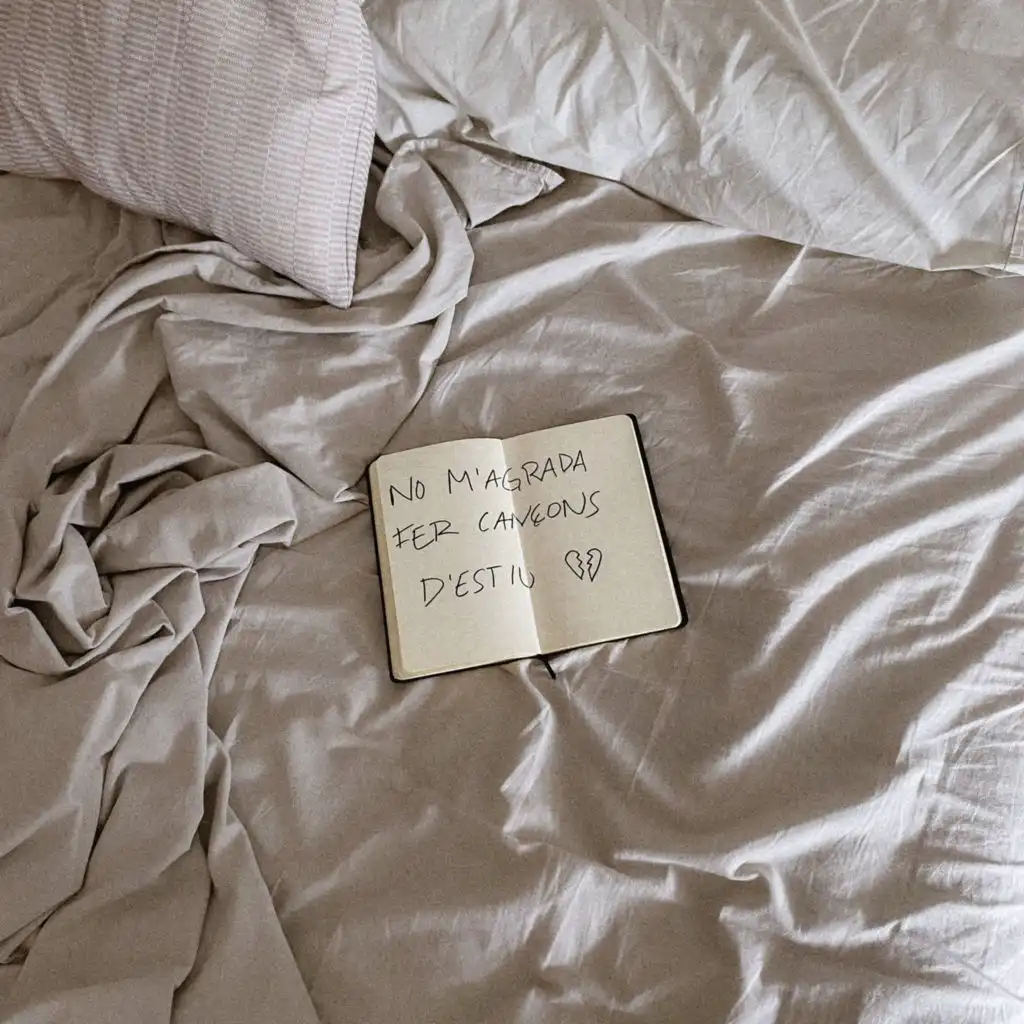 NO M'AGRADA
FER CANÇONS
D'ESTIU